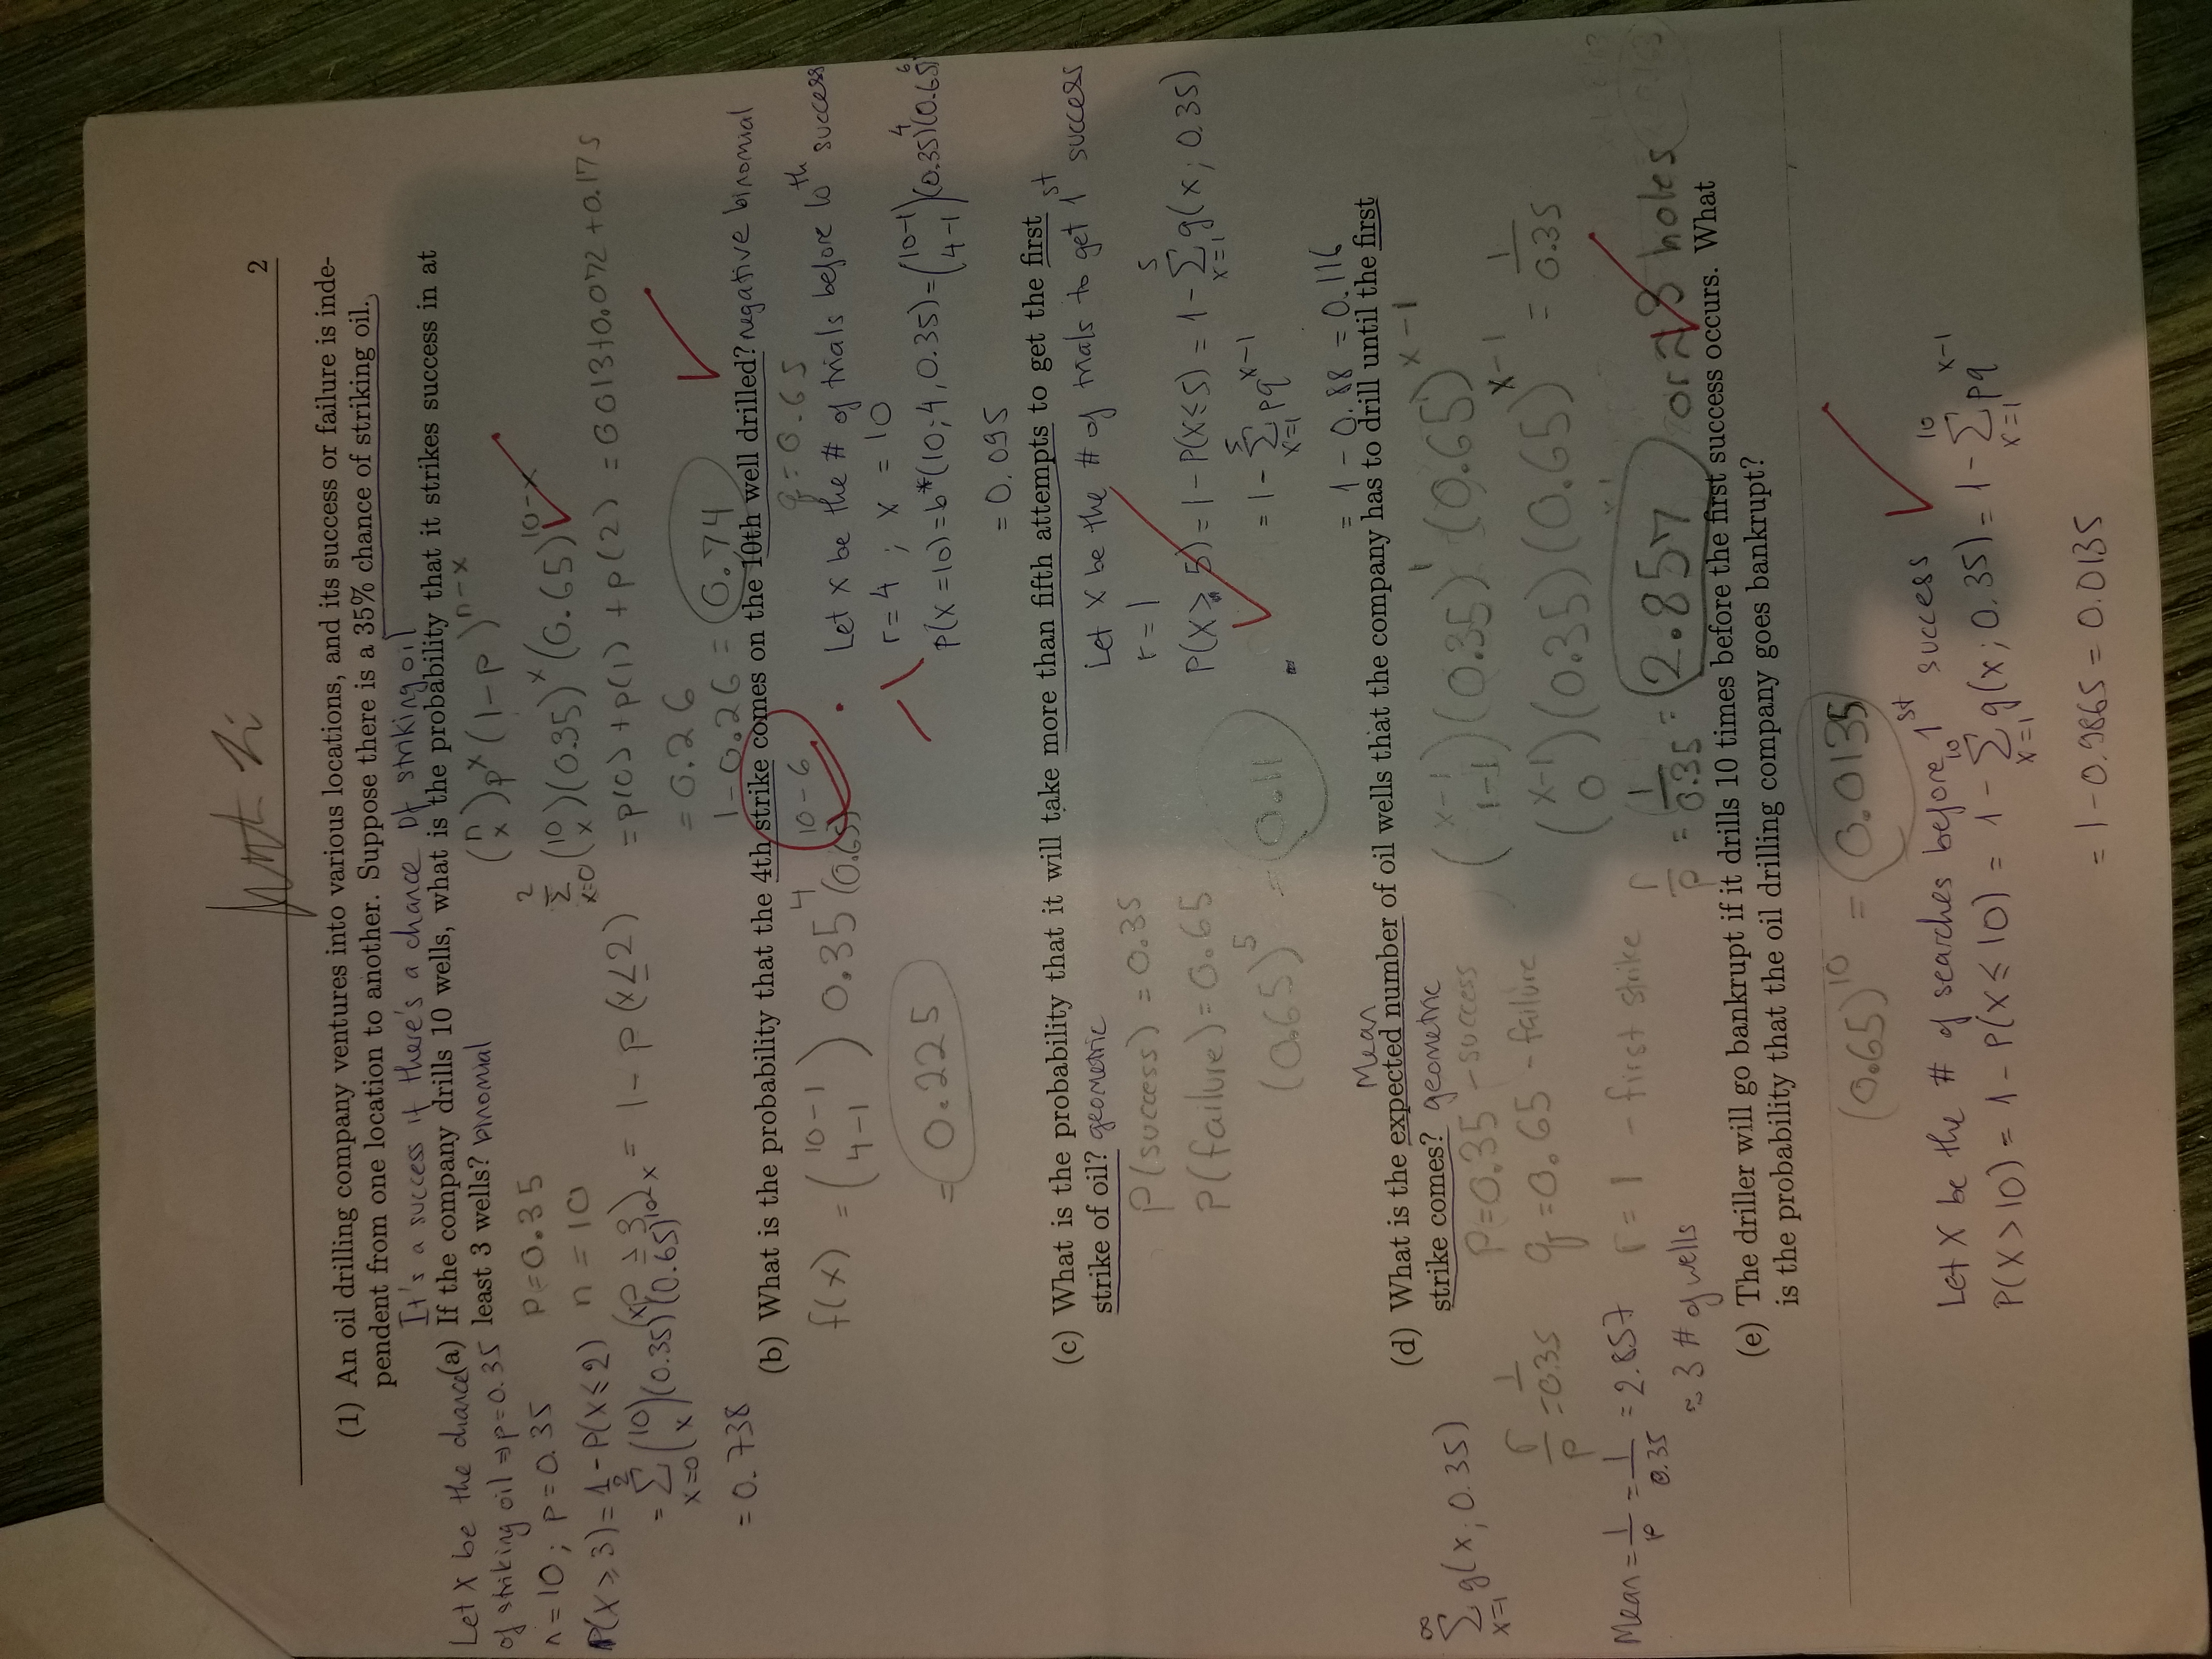 2
(1) An oil drilling company ventures into various locations, and its success or failure is inde-
pendent from one location to another. Suppose there is a 35% chance of striking oil.
It's a success if there's a chance of striking oil
(a) If the company drills 10 wells, what is the probability that it strikes success in at
least 3 wells? binomial
Let X be the chance
of striking oil ⇒ p=0.35
n=10; p=0.35
P(X ≥ 3) = 1 - P(X ≤ 2)
= Σ_{x=0}^{2} (10 x) (0.35)^x (0.65)^{10-x}
= 0.738
P=0.35
n = 10
= 1 - p(x ≤ 2)
(n x) p^x (1-p)^{n-x}
Σ_{x=0}^{2} (10 x) (0.35)^x (0.65)^{10-x}
= p(0) + p(1) + p(2) = 0.013 + 0.072 + 0.175
= 0.26
1 - 0.26 = 0.74
(b) What is the probability that the 4th strike comes on the 10th well drilled? negative binomial
f(x) = (10-1 4-1) 0.35^4 (0.65)^{10-6}
= 0.225
q = 0.65
Let X be the # of trials before 10th success
r=4 ; x = 10
P(X=10) = b*(10; 4, 0.35) = (10-1 4-1) (0.35)^4 (0.65)^6
= 0.095
-1
(c) What is the probability that it will take more than fifth attempts to get the first
strike of oil? geometric
P(success) = 0.35
P(failure) = 0.65
(0.65)^5 = 0.11
Let X be the # of trials to get 1st success
r=1
P(X ≥ 5) = 1 - P(X ≤ 5) = 1 - Σ_{x=1}^{5} g(x; 0.35)
= 1 - Σ_{x=1}^{5} pq^{x-1}
= 1 - 0.88 = 0.116
Mean
(d) What is the expected number of oil wells that the company has to drill until the first
strike comes? geometric
Σ_{x=1}^{∞} g(x; 0.35)
r/p = 1/0.35
Mean = 1/p = 1/0.35 = 2.857
≈ 3 # of wells
P=0.35 - success
q=0.65 - failure
r = 1 - first strike
(x-1 1-1) (0.35)^1 (0.65)^{x-1}
(x-1 0) (0.35) (0.65)^{x-1} = 1/0.35
r/p = 1/0.35 = 2.857 or ≈ 3 holes
(e) The driller will go bankrupt if it drills 10 times before the first success occurs. What
is the probability that the oil drilling company goes bankrupt?
(0.65)^10 = 0.0135
Let X be the # of searches before 1st success
P(X>10) = 1 - P(X ≤ 10) = 1 - Σ_{x=1}^{10} g(x; 0.35) = 1 - Σ_{x=1}^{10} pq^{x-1}
= 1 - 0.9865 = 0.0135